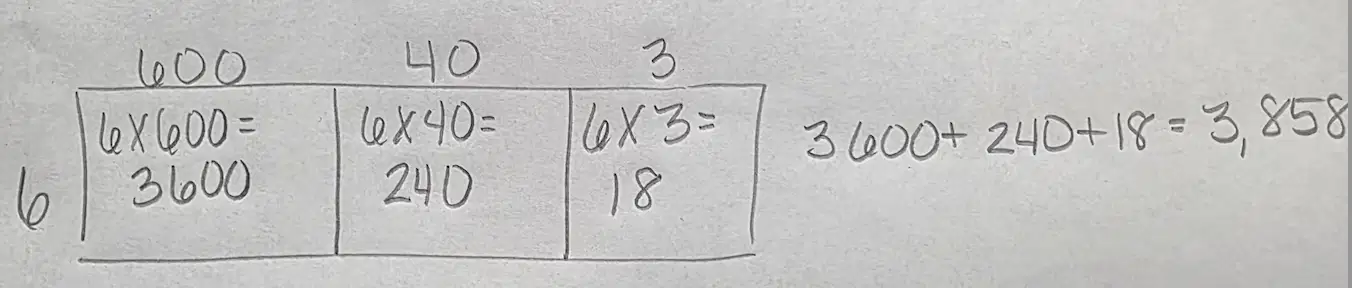 600 40 3
6 6X600= 3600
6X40= 240
6X3= 18
3600+ 240+18=3,858